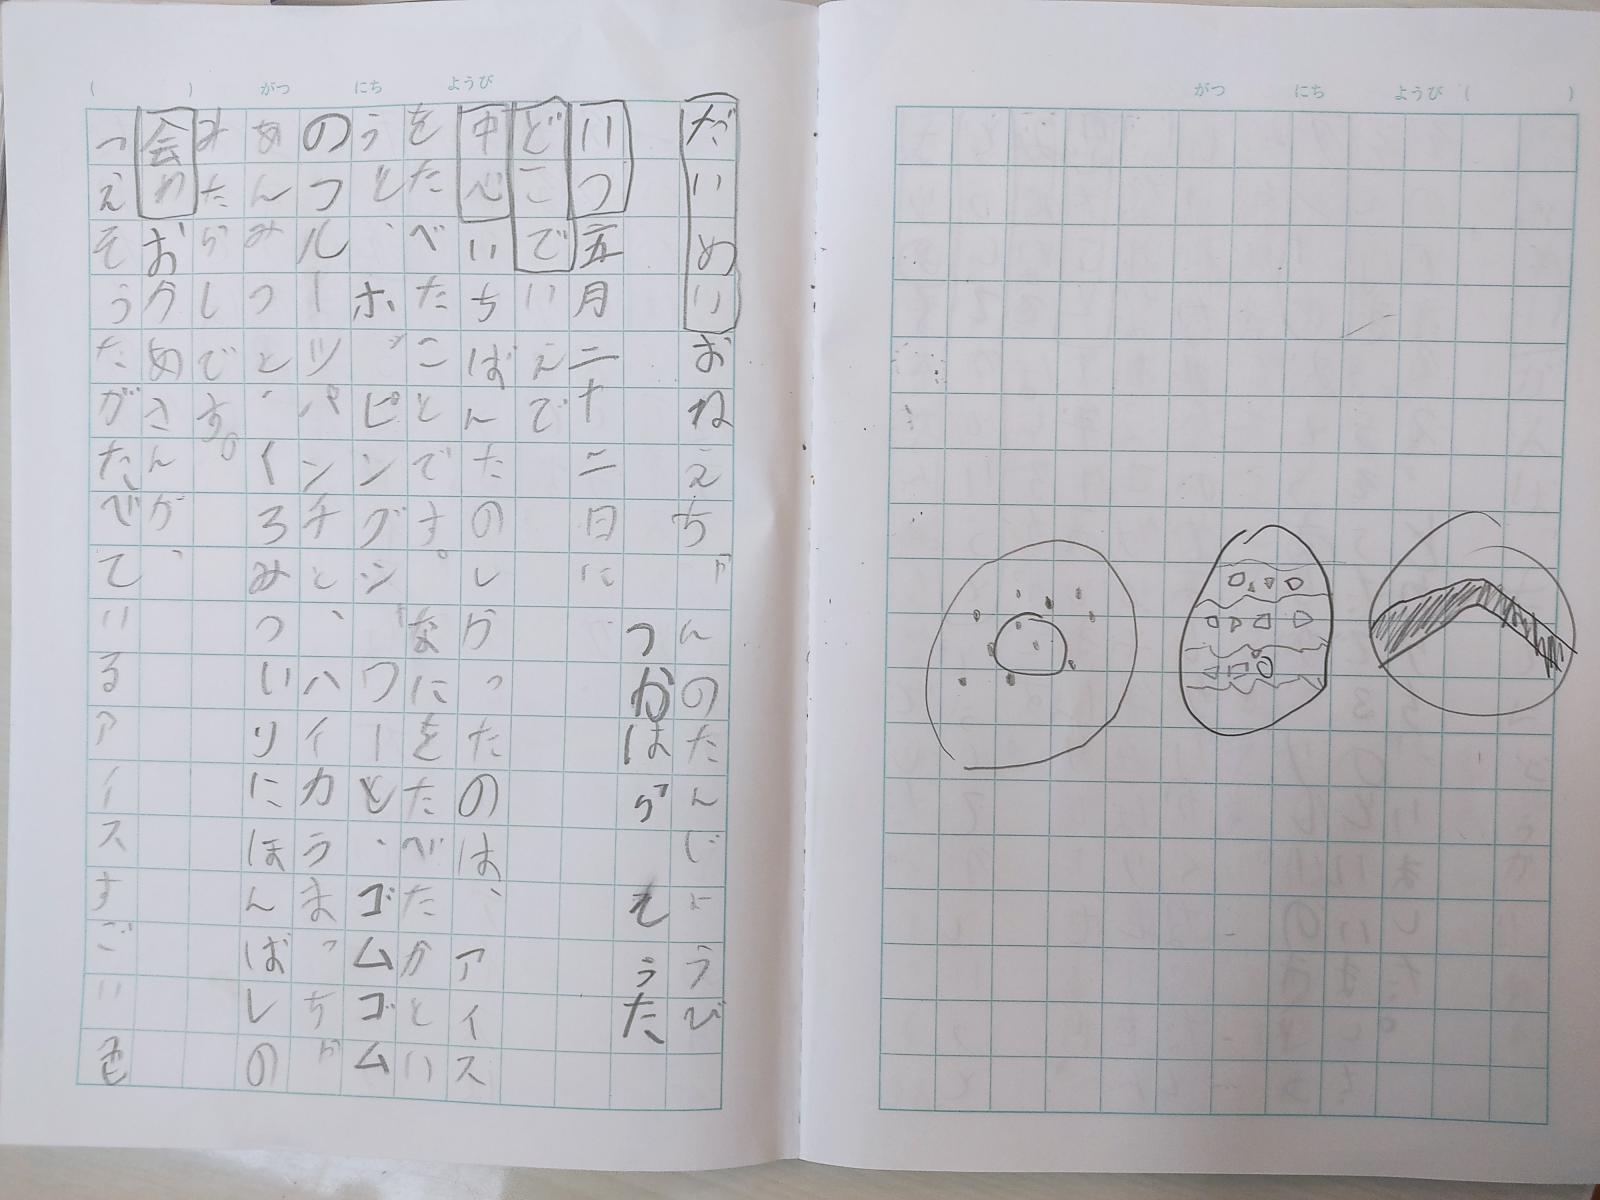 がつ にち ようび ( )
( ) がつ にち ようび
だいめいおねえちゃんのたんじょうび
つかはら そうた
いつ五月二十二日に
どこでいえで
中心いちばんたのしかったのは、アイス
をたべたことです。なにをたべたかとい
うと、ホッピングシャワーと、ゴムゴム
のフルーツパンチと、ハイカラまっちゃ
あんみつと、くろみついりにほんばしの
みたらしです。
会わおかあさんが、
「えそうたがたべているアイスすごい色